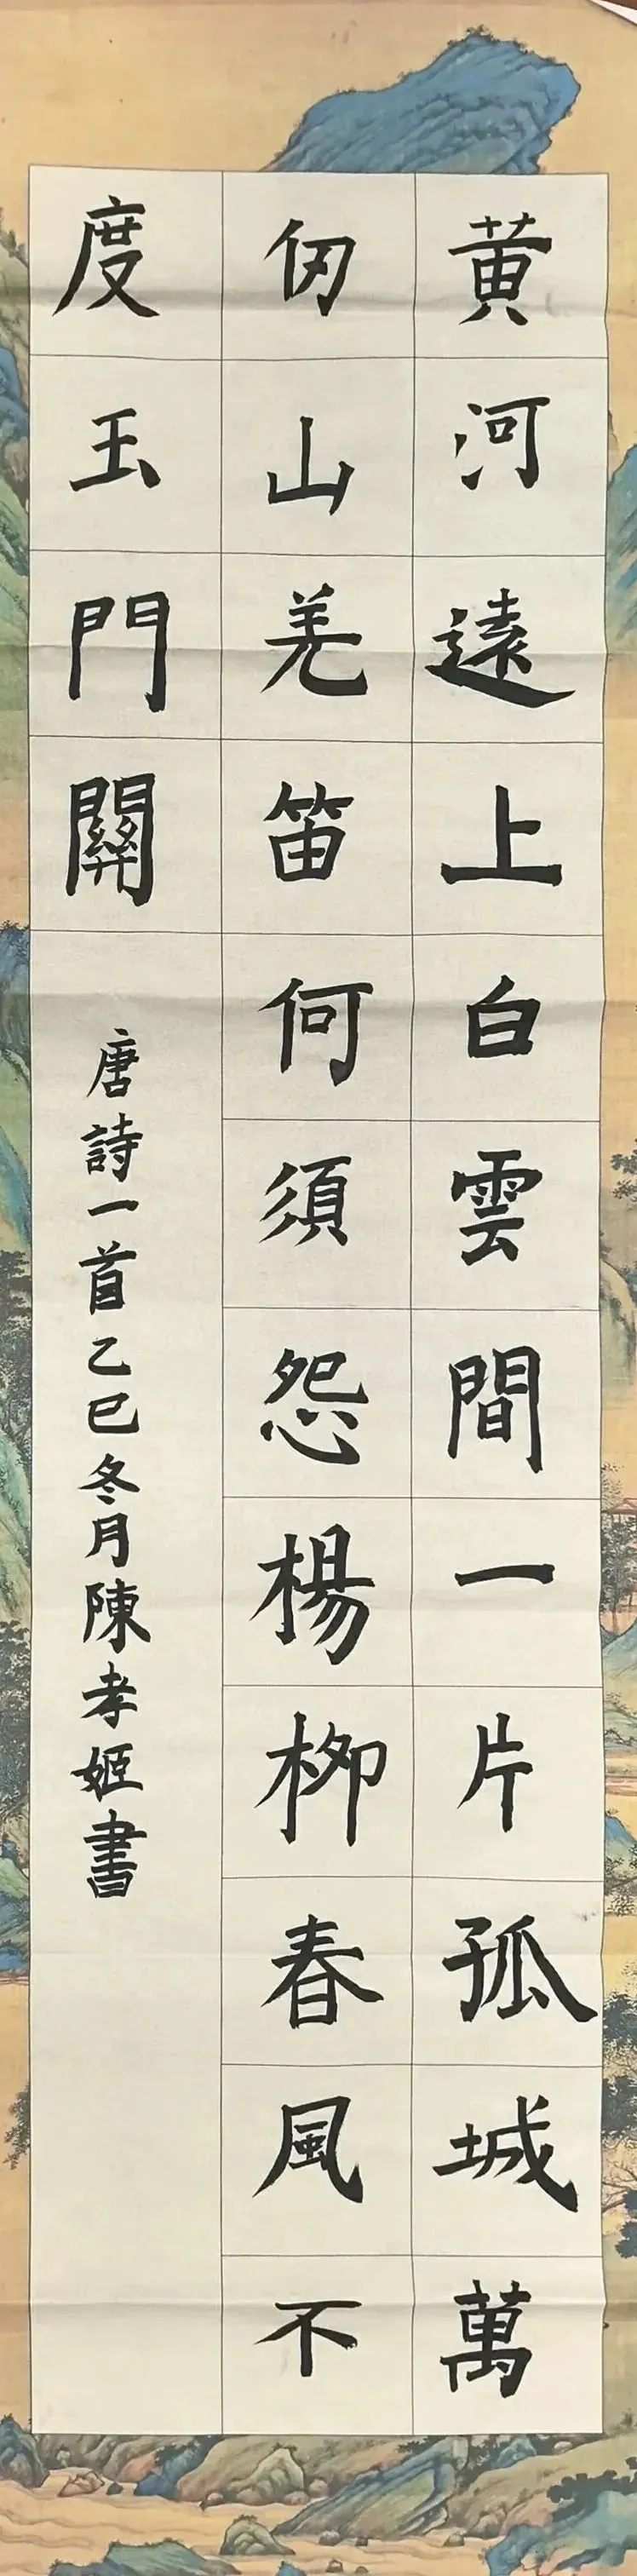 黄河遠上白雲間一片孤城萬
仞山羌笛何須怨楊柳春風不
度玉門關
唐詩一首乙巳冬月陳孝姬書